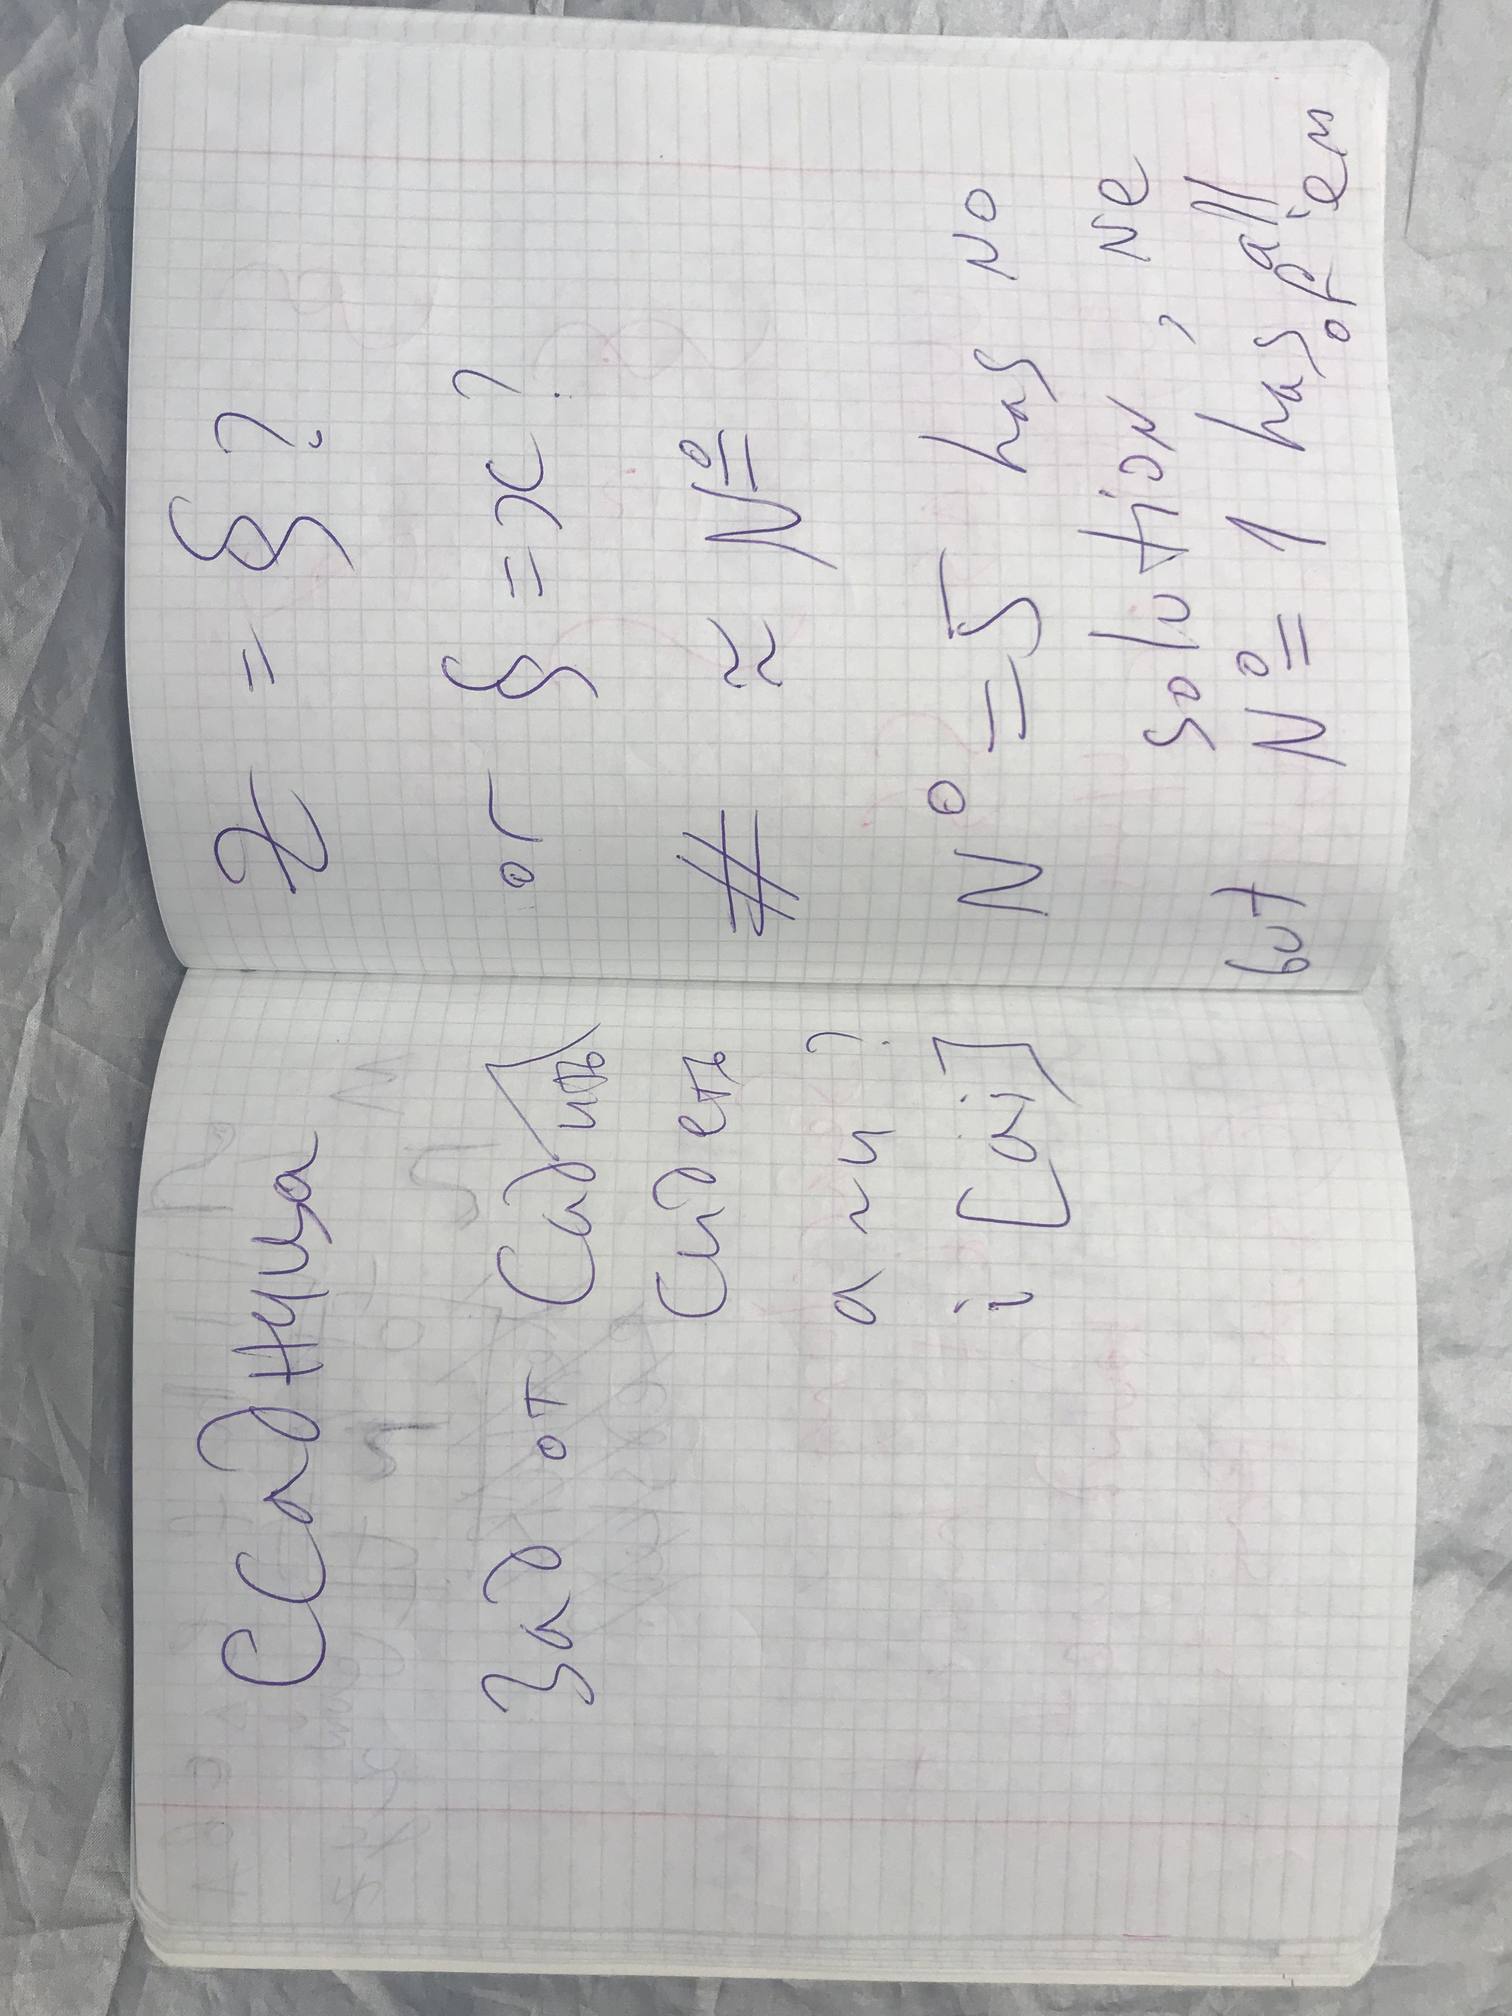 ССаднуца
Зад от Садить
Сидеть
а ~ и ?
i [ai]
Z = § ?
or § = x ?
# ≈ №
N° = 5 has no
solution, Ne
but № 1 has all
of 'em